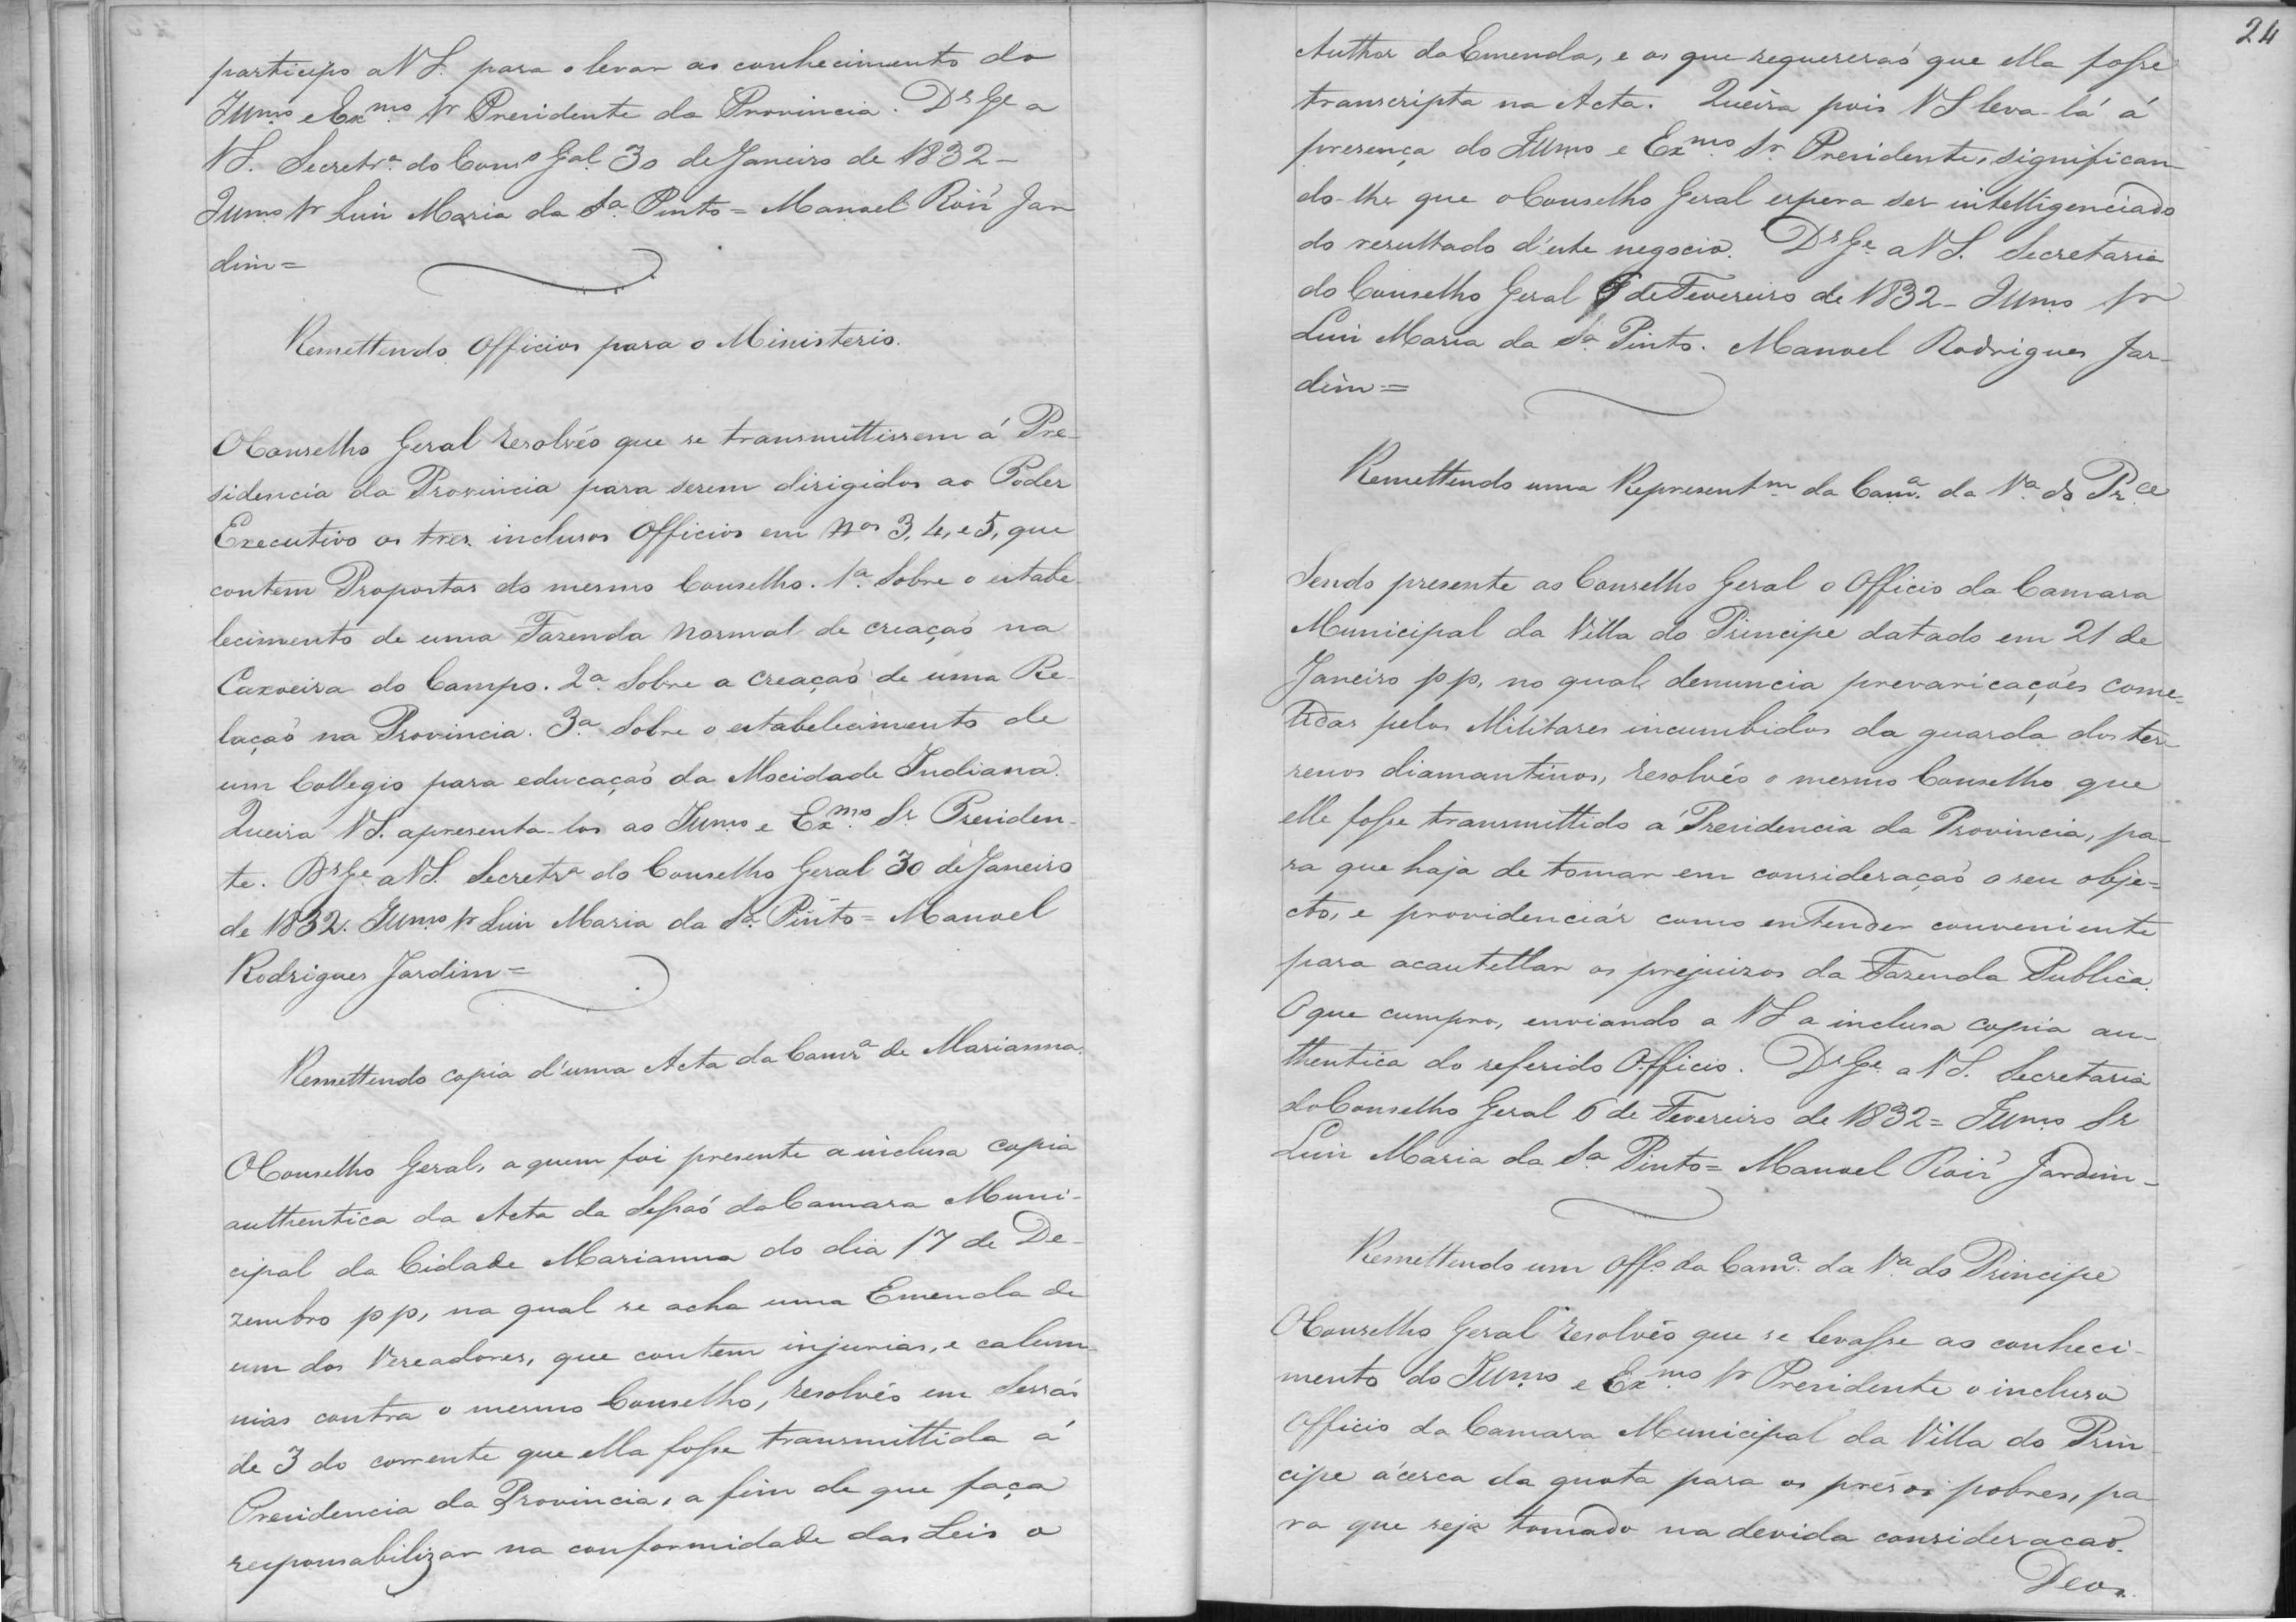 participo a V S. para o levar ao conhecimento do
Illmo. e Exmo. Sr Presidente da Provincia. Ds Ge a
V S. Secretra. do Conso Gal. 30 de Janeiro de 1832 -
Illmo. Sr Luis Maria da Sa. Pinto = Manoel Roiz' Jar
dim =
Remettendo Officios para o Ministerio.
O Conselho Geral resolvêo que se transmittissem á Pre-
sidencia da Provincia para serem dirigidos ao Poder
Executivo os tres inclusos Officios em Nos 3, 4, e 5, que
contem Propostas do mesmo Conselho. 1a. Sobre o estabe-
lecimento de uma Fazenda normal de creaçaõ na
Caxoeira do Campo. 2a. Sobre a creaçaõ de uma Re-
laçaõ na Provincia. 3a. Sobre o estabelecimento de
um Collegio para educaçaõ da Mocidade Indiana.
Queira V S. apresenta-los ao Illmo. e Exmo. Sr. Presiden-
te. Ds Ge. a V S. Secretra. do Conselho Geral 30 de Janeiro
de 1832. Illmo. Sr Luis Maria da Sa. Pinto = Manoel
Rodrigues Jardim =
Remettendo copia d'uma Acta da Camra. de Marianna.
O Conselho Geral, a quem foi presente a inclusa copia
authentica da Acta da Sessaõ da Camara Muni-
cipal da Cidade Marianna do dia 17 de De-
zembro p p, na qual se acha uma Emenda de
um dos Vereadores, que contem injurias, e calum-
nias contra o mesmo Conselho, resolvêo em Sessaõ
de 3 do corrente que ella fosse transmittida á
Presidencia da Provincia, a fim de que faça
responsabilizar na conformidade das Leis o
24
Author da Emenda, e os que requereraõ que ella fosse
transcripta na Acta. Queira pois V S leva-lá á
presença do Illmo e Exmo. Sr. Presidente, significan
do-lhe que o Conselho Geral espera ser intelligenciado
do resultado d'este negocio. Ds Ge. a V S. Secretaria
do Conselho Geral 6 de Fevereiro de 1832 - Illmo. Sr
Luis Maria da Sa. Pinto. Manoel Rodrigues Jar-
dim =
Remettendo uma Representm. da Cama. da Va. do Pr.ce
Sendo presente ao Conselho Geral o Officio da Camara
Municipal da Villa do Principe datado em 21 de
Janeiro p p, no qual denuncia prevaricaçoẽs come-
tidas pelos Militares incumbidos da guarda dos ter-
renos diamantinos, resolvêo o mesmo Conselho que
elle fosse transmittido á Presidencia da Provincia, pa-
ra que haja de tomar em consideraçaõ o seu obje=
cto, e providenciar como entender conveniente
para acautellar os prejuizos da Fazenda Publica.
O que cumpro, enviando a V S a inclusa copia au-
thentica do referido Officio. Ds Ge. a V S. Secretaria
do Conselho Geral 6 de Fevereiro de 1832 = Illmo. Sr
Luis Maria da Sa. Pinto = Manoel Roiz' Jardim -
Remettendo um Offo. da Cama. da Va. do Principe
O Conselho Geral resolvêo que se levasse ao conheci-
mento do Illmo. e Exmo. Sr Presidente o incluso
Officio da Camara Municipal da Villa do Prin-
cipe ácerca da quota para os prezos pobres, pa-
ra que seja tomado na devida consideracao.
Deos.